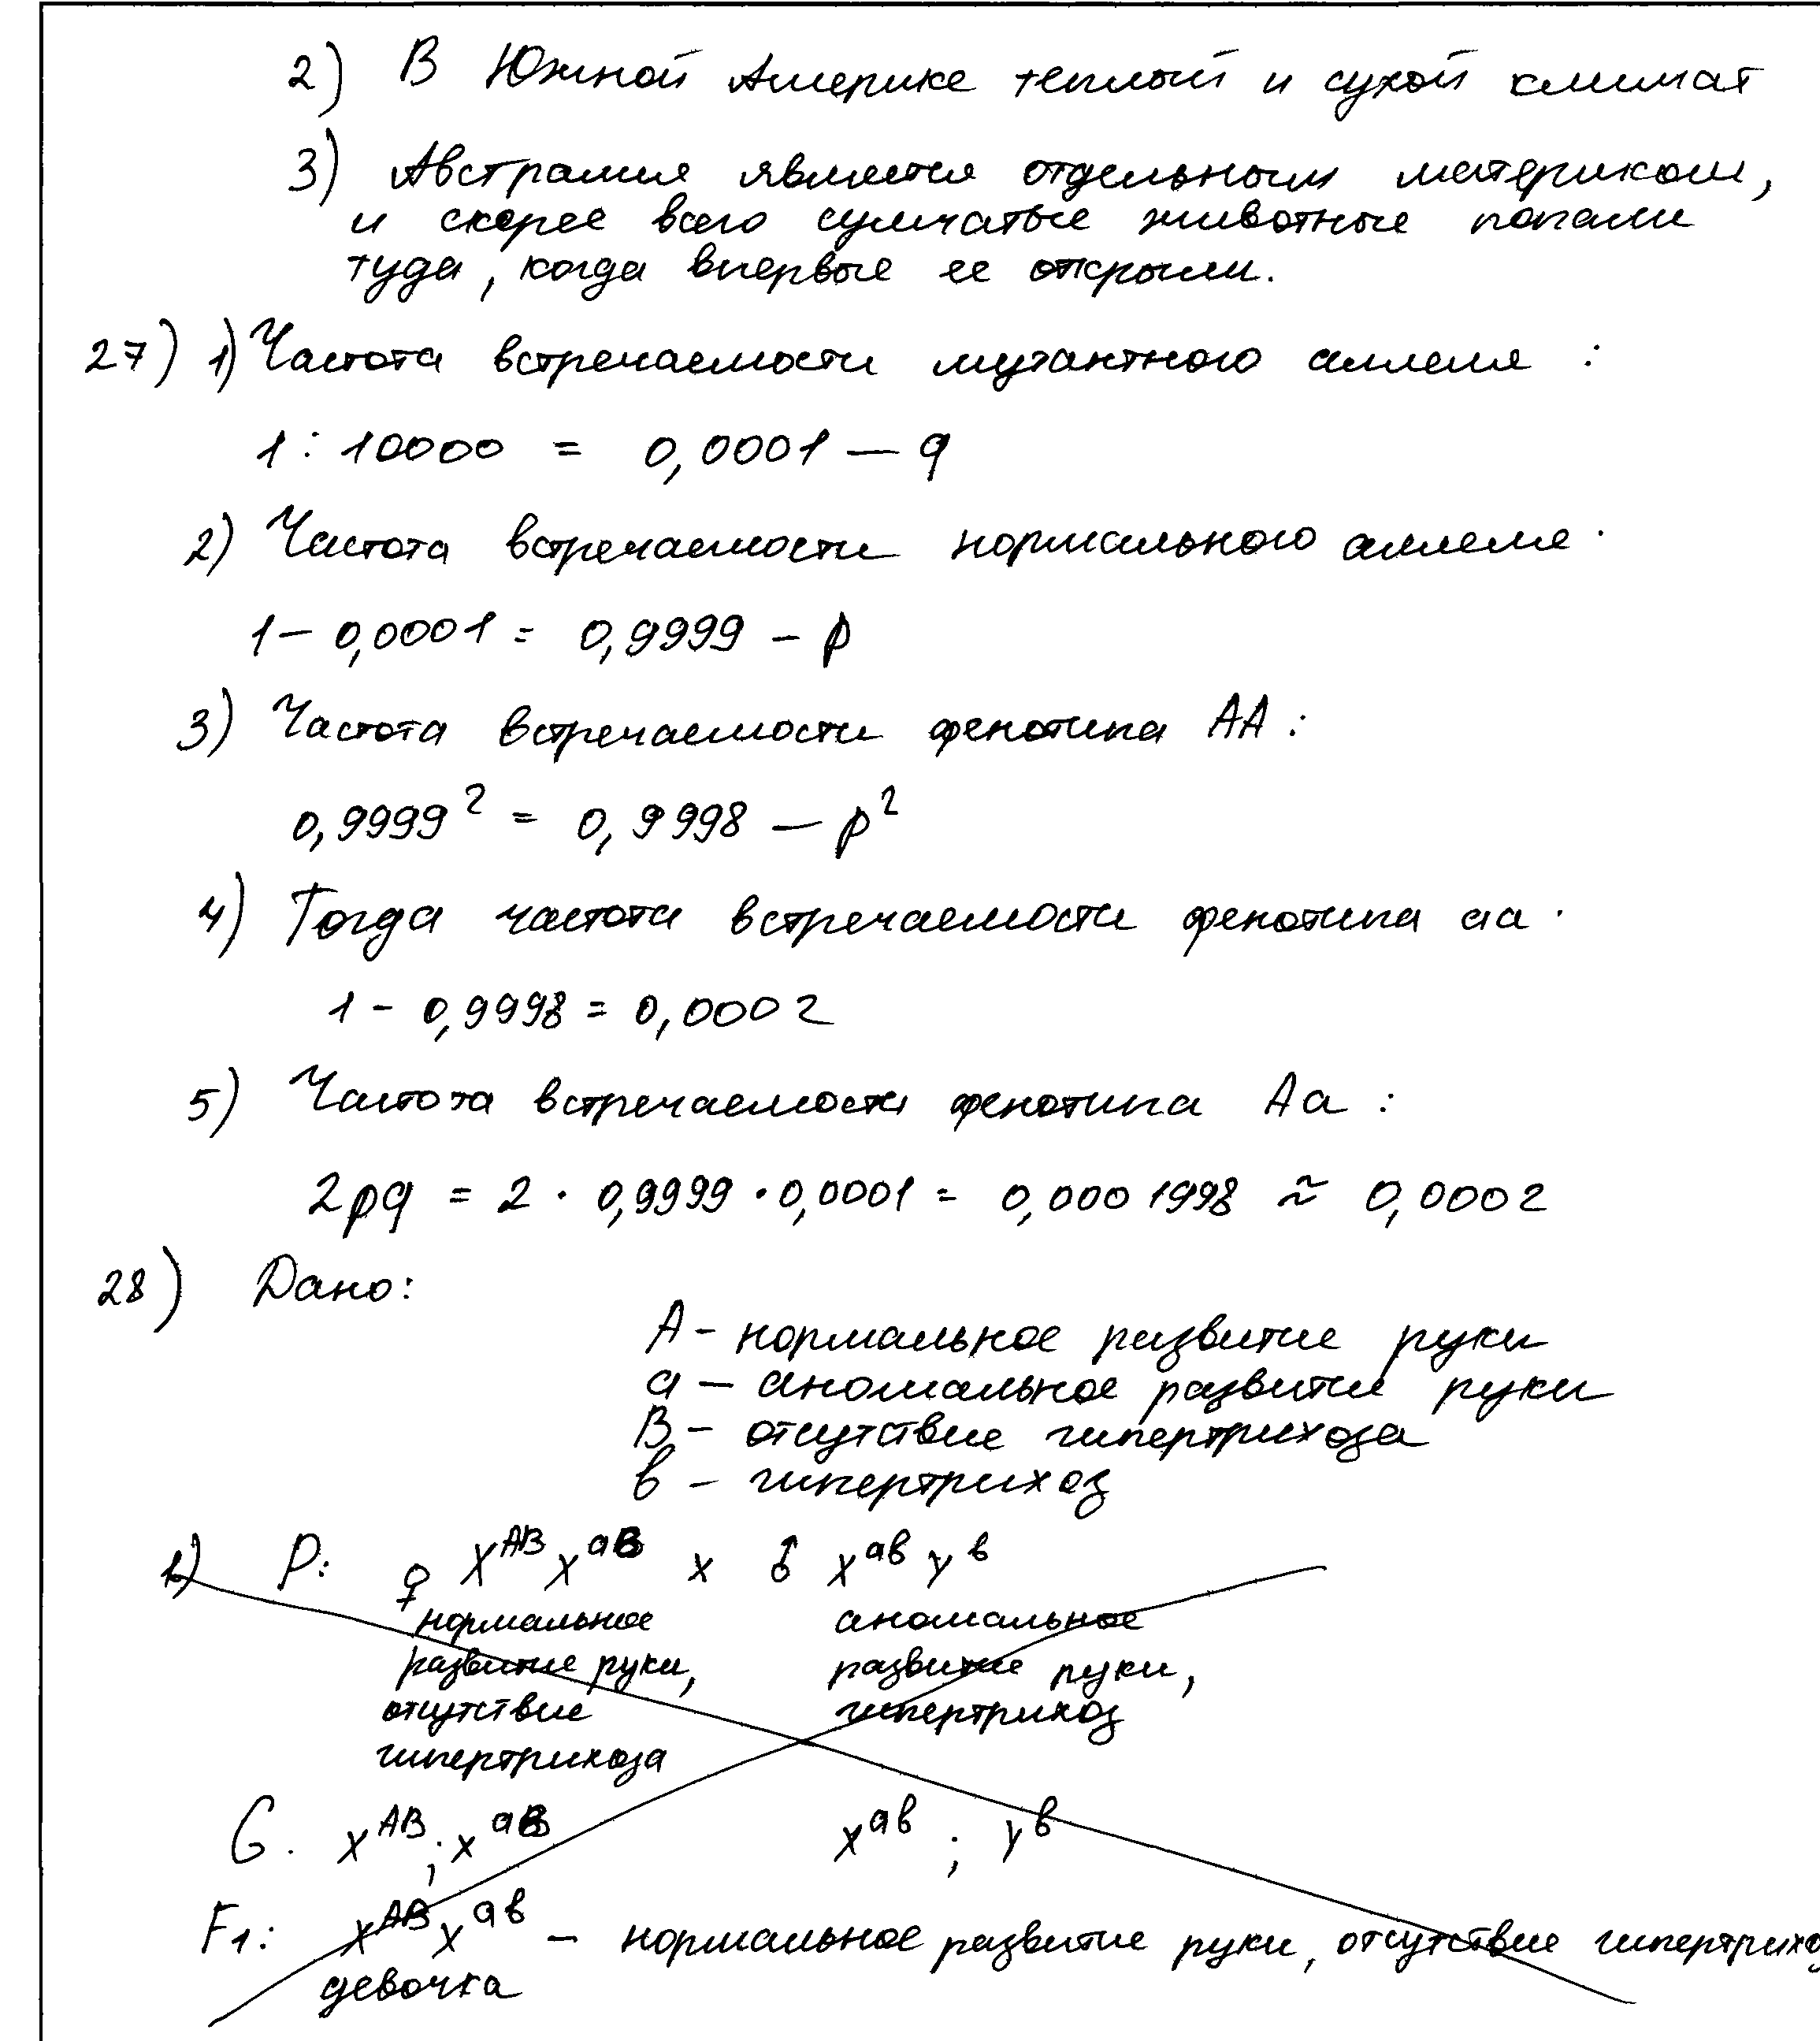 2) В Южной Америке теплый и сухой климат
3) Австралия является отдельным материком,
и скорее всего сумчатые животные попали
туда, когда впервые ее открыли.
27) 1) Частота встречаемости мутантного аллеля :
1 : 10000 = 0,0001 — q
2) Частота встречаемости нормального аллеля ·
1 – 0,0001 = 0,9999 – p
3) Частота встречаемости фенотипа АА :
0,9999² = 0,9998 — p²
4) Тогда частота встречаемости фенотипа аа ·
1 - 0,9998 = 0,0002
5) Частота встречаемости фенотипа Аа :
2pq = 2 · 0,9999 · 0,0001 = 0,0001998 ≈ 0,0002
28) Дано:
А – нормальное развитие руки
а – аномальное развитие руки
В – отсутствие гипертрихоза
в – гипертрихоз
1) P: ♀ X^АВ X^аВ x ♂ X^ав Y^в
нормальное аномальное
развитие руки, развитие руки,
отсутствие гипертрихоз
гипертрихоза
G. X^АВ ; X^аВ X^ав ; Y^в
F1: X^АВ X^ав – нормальное развитие руки, отсутствие гипертрихо
девочка